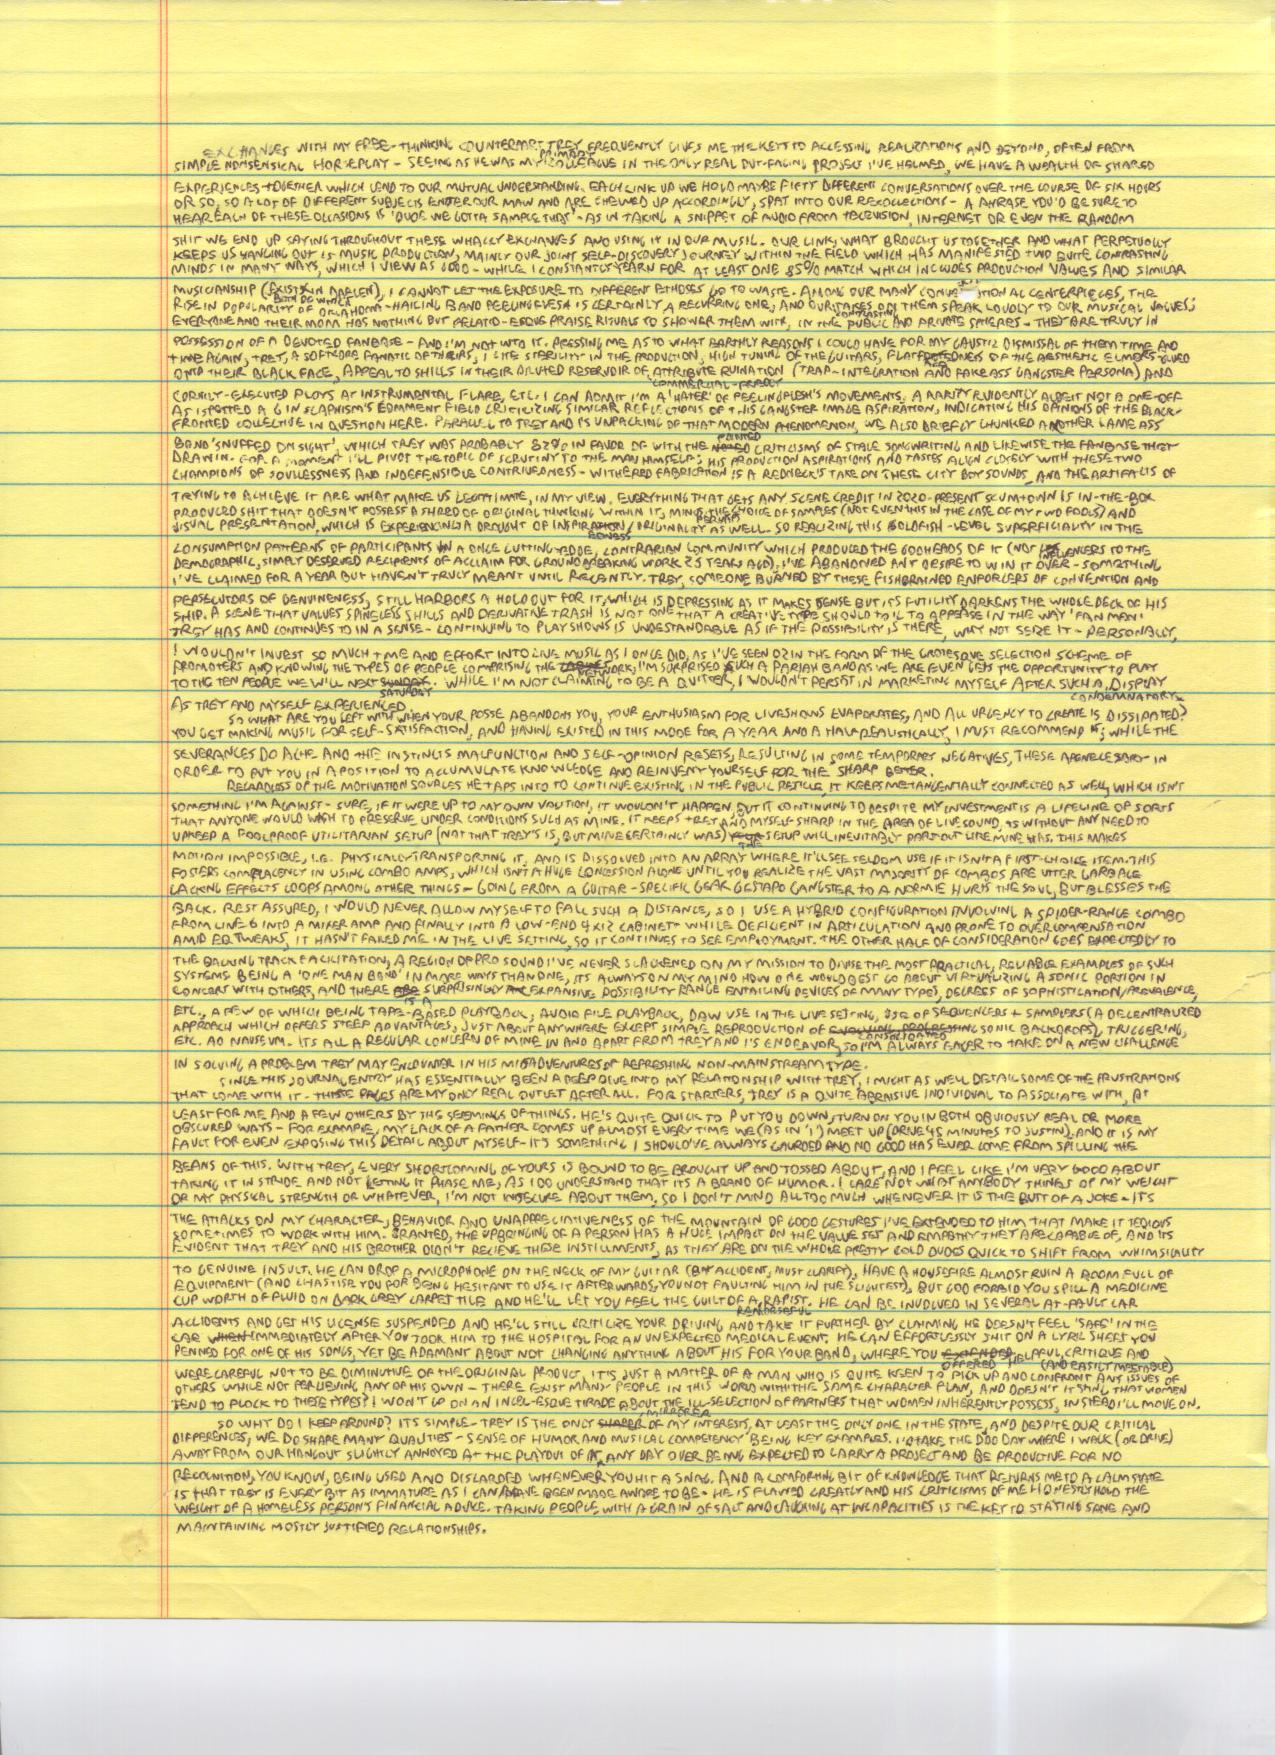 EXCHANGES WITH MY FREE-THINKING COUNTERPART TREY FREQUENTLY GIVES ME THE KEYS TO ACCESSING REALIZATIONS AND BEYOND, OFTEN FROM
SIMPLE NONSENSICAL HORSEPLAY - SEEING AS HE WAS MY PRIMARY COLLEAGUE IN THE ONLY REAL OUT-FACING PROJECT I'VE HELMED, WE HAVE A WEALTH OF SHARED
EXPERIENCES TOGETHER WHICH LEND TO OUR MUTUAL UNDERSTANDING. EACH LINK UP WE HOLD MAYBE FIFTY DIFFERENT CONVERSATIONS OVER THE COURSE OF SIX HOURS
OR SO, SO A LOT OF DIFFERENT SUBJECTS ENTER OUR MAW AND ARE CHEWED UP ACCORDINGLY, SPAT INTO OUR RECOLLECTIONS - A PHRASE YOU'D BE SURE TO
HEAR EACH OF THESE OCCASIONS IS 'DUDE WE GOTTA SAMPLE THAT' - AS IN TAKING A SNIPPET OF AUDIO FROM TELEVISION, INTERNET OR EVEN THE RANDOM
SHIT WE END UP SAYING THROUGHOUT THESE WHACKY EXCHANGES AND USING IT IN OUR MUSIC. OUR LINK, WHAT BROUGHT US TOGETHER AND WHAT PERPETUALLY
KEEPS US HANGING OUT IS MUSIC PRODUCTION, MAINLY OUR JOINT SELF-DISCOVERY JOURNEY WITHIN THE FIELD WHICH HAS MANIFESTED TWO QUITE CONTRASTING
MINDS IN MANY WAYS, WHICH I VIEW AS GOOD - WHILE I CONSTANTLY YEARN FOR AT LEAST ONE 85% MATCH WHICH INCLUDES PRODUCTION VALUES AND SIMILAR
MUSICIANSHIP (EXISTS IN DARLEN), I CANNOT LET THE EXPOSURE TO DIFFERENT ETHOSES GO TO WASTE. AMONG OUR MANY CONVERSATIONAL CENTERPIECES, THE
RISE IN POPULARITY OF OKLAHOMA-HAILING BAND PEELINGFLESH IS CERTAINLY A RECURRING ONE, AND OUR CONTRASTING TAKES ON THEM SPEAK LOUDLY TO OUR MUSICAL VALUES;
EVERYONE AND THEIR MOM HAS NOTHING BUT FELATIO-ESQUE PRAISE RITUALS TO SHOWER THEM WITH, IN THE PUBLIC AND PRIVATE SPHERES - THEY ARE TRULY IN
POSSESSION OF A DEVOTED FANBASE - AND I'M NOT INTO IT. PRESSING ME AS TO WHAT EARTHLY REASONS I COULD HAVE FOR MY CAUSTIC DISMISSAL OF THEM TIME AND
TIME AGAIN, TREY, A SOFTCORE FANATIC OF THEIRS, I CITE STERILITY IN THE PRODUCTION, HIGH TUNING OF THE GUITARS, FLATFOOTEDNESS OF THE AESTHETIC ELMERS-GLUED
ONTO THEIR BLACK FACE, APPEAL TO SHILLS IN THEIR DILUTED RESERVOIR OF ATTRIBUTE RUINATION (TRAP-INTEGRATION AND FAKEASS GANGSTER PERSONA) AND
CORNILY-EXECUTED PLOYS AT INSTRUMENTAL FLARE, ETC. I CAN ADMIT I'M A 'HATER' OF PEELINGFLESH'S MOVEMENTS, A RARITY EVIDENTLY ALBEIT NOT A ONE-OFF
AS I SPOTTED A G IN SLAPHISM'S COMMENT FIELD CRITICIZING SIMILAR REFLECTIONS OF THIS GANGSTER IMAGE ASPIRATION, INDICATING HIS OPINIONS OF THE BLACK-
FRONTED COLLECTIVE IN QUESTION HERE. PARALLEL TO TREY AND I'S UNPACKING OF THAT MODERN PHENOMENON, WE ALSO BRIEFLY CHUNKED ANOTHER LAME ASS
BAND 'SNUFFED ON SIGHT', WHICH TREY WAS PROBABLY 82% IN FAVOR OF WITH THE POINTED CRITICISMS OF STALE SONGWRITING AND LIKEWISE THE FANBASE THEY
DRAW IN. FOR A MOMENT I'LL PIVOT THE TOPIC OF SCRUTINY TO THE MAN HIMSELF; HIS PRODUCTION ASPIRATIONS AND TASTES ALIGN CLOSELY WITH THESE TWO
CHAMPIONS OF SOULLESSNESS AND INDEFENSIBLE CONTRIVEDNESS - WITHERED FABRICATION IS A REDNECK'S TAKE ON THESE CITY BOY SOUNDS, AND THE ARTIFACTS OF
TRYING TO ACHIEVE IT ARE WHAT MAKE US LEGITIMATE, IN MY VIEW. EVERYTHING THAT GETS ANY SCENE CREDIT IN 2020-PRESENT SCUMTOWN IS IN-THE-BOX
PRODUCED SHIT THAT DOESN'T POSSESS A SHRED OF ORIGINAL THINKING WITHIN IT, MINUS THE CHOICE OF SAMPLES (NOT EVEN THIS IN THE CASE OF MY TWO FOOLS) AND
VISUAL PRESENTATION, WHICH IS EXPERIENCING A DROUGHT OF INSPIREDNESS/ORIGINALITY PERHAPS AS WELL. SO REALIZING THIS GOLDFISH-LEVEL SUPERFICIALITY IN THE
CONSUMPTION PATTERNS OF PARTICIPANTS IN A ONCE CUTTING-EDGE, CONTRARIAN COMMUNITY WHICH PRODUCED THE GODHEADS OF IT (NOT INFLUENCERS TO THE
DEMOGRAPHIC, SIMPLY DESERVED RECIPIENTS OF ACCLAIM FOR GROUNDBREAKING WORK 25 YEARS AGO), I'VE ABANDONED ANY DESIRE TO WIN IT OVER - SOMETHING
I'VE CLAIMED FOR A YEAR BUT HAVEN'T TRULY MEANT UNTIL RECENTLY. TREY, SOMEONE BURNED BY THESE FISHBRAINED ENFORCERS OF CONVENTION AND
PERSECUTORS OF GENUINENESS, STILL HARBORS A HOLD OUT FOR IT, WHICH IS DEPRESSING AS IT MAKES SENSE BUT ITS FUTILITY DARKENS THE WHOLE DECK OF HIS
SHIP. A SCENE THAT VALUES SPINELESS SHILLS AND DERIVATIVE TRASH IS NOT ONE THAT A CREATIVE TYPE SHOULD TOIL TO APPEASE IN THE WAY 'FAN MAN'
TREY HAS AND CONTINUES TO IN A SENSE - CONTINUING TO PLAY SHOWS IS UNDESTANDABLE AS IF THE POSSIBILITY IS THERE, WHY NOT SEIZE IT - PERSONALLY,
I WOULDN'T INVEST SO MUCH TIME AND EFFORT INTO LIVE MUSIC AS I ONCE DID, AS I'VE SEEN OZ IN THE FORM OF THE GROTESQUE SELECTION SCHEME OF
PROMOTERS AND KNOWING THE TYPES OF PEOPLE COMPRISING THE NETWORK, I'M SURPRISED SUCH A PARIAH BAND AS WE ARE EVEN GETS THE OPPORTUNITY TO PLAY
TO THE TEN PEOPLE WE WILL NEXT SATURDAY. WHILE I'M NOT CLAIMING TO BE A QUITTER, I WOULDN'T PERSIST IN MARKETING MYSELF AFTER SUCH A CONDEMNATORY DISPLAY
AS TREY AND MYSELF EXPERIENCED.
SO WHAT ARE YOU LEFT WITH WHEN YOUR POSSE ABANDONS YOU, YOUR ENTHUSIASM FOR LIVE SHOWS EVAPORATES, AND ALL URGENCY TO CREATE IS DISSIPATED?
YOU GET MAKING MUSIC FOR SELF-SATISFACTION, AND HAVING EXISTED IN THIS MODE FOR A YEAR AND A HALF REALISTICALLY, I MUST RECOMMEND IT; WHILE THE
SEVERANCES DO ACHE AND THE INSTINCTS MALFUNCTION AND SELF-OPINION RESETS, RESULTING IN SOME TEMPORARY NEGATIVES, THESE ARE NECESSARY IN
ORDER TO PUT YOU IN A POSITION TO ACCUMULATE KNOWLEDGE AND REINVENT YOURSELF FOR THE SHARP BETTER.
REGARDLESS OF THE MOTIVATION SOURCES HE TAPS INTO TO CONTINUE EXISTING IN THE PUBLIC RETICLE, IT KEEPS ME TANGENTIALLY CONNECTED AS WELL, WHICH ISN'T
SOMETHING I'M AGAINST - SURE, IF IT WERE UP TO MY OWN VOLITION, IT WOULDN'T HAPPEN, BUT IT CONTINUING TO DESPITE MY INVESTMENT IS A LIFELINE OF SORTS
THAT ANYONE WOULD WISH TO PRESERVE UNDER CONDITIONS SUCH AS MINE. IT KEEPS TREY AND MYSELF SHARP IN THE AREA OF LIVE SOUND, AS WITHOUT ANY NEED TO
UPKEEP A FOOLPROOF UTILITARIAN SETUP (NOT THAT TREY'S IS, BUT MINE CERTAINLY WAS) THE SETUP WILL INEVITABLY PART OUT LIKE MINE HAS. THIS MAKES
MOTION IMPOSSIBLE, I.E. PHYSICALLY TRANSPORTING IT, AND IS DISSOLVED INTO AN ARRAY WHERE IT'LL SEE SELDOM USE IF IT ISN'T A FIRST-CHOICE ITEM. THIS
FOSTERS COMPLACENCY IN USING COMBO AMPS, WHICH ISN'T A HUGE CONCESSION ALONE UNTIL YOU REALIZE THE VAST MAJORITY OF COMBOS ARE UTTER GARBAGE
LACKING EFFECTS LOOPS AMONG OTHER THINGS - GOING FROM A GUITAR-SPECIFIC GEAR GESTAPO GANGSTER TO A NORMIE HURTS THE SOUL, BUT BLESSES THE
BACK. REST ASSURED, I WOULD NEVER ALLOW MYSELF TO FALL SUCH A DISTANCE, SO I USE A HYBRID CONFIGURATION INVOLVING A SPIDER-RANGE COMBO
FROM LINE 6 INTO A MIXER AMP AND FINALLY INTO A LOW-END 4X12 CABINET - WHILE DEFICIENT IN ARTICULATION AND PRONE TO OVERCOMPENSATION
AMID EQ TWEAKS, IT HASN'T FAILED ME IN THE LIVE SETTING, SO IT CONTINUES TO SEE EMPLOYMENT. THE OTHER HALF OF CONSIDERATION GOES EXPECTEDLY TO
THE BACKING TRACK FACILITATION, A REGION OF PRO SOUND I'VE NEVER SLACKENED ON MY MISSION TO DIVISE THE MOST PRACTICAL, RELIABLE EXAMPLES OF SUCH
SYSTEMS. BEING A 'ONE MAN BAND' IN MORE WAYS THAN ONE, ITS ALWAYS ON MY MIND HOW ONE WOULD BEST GO ABOUT VIRTUALIZING A SONIC PORTION IN
CONCERT WITH OTHERS, AND THERE IS A SURPRISINGLY EXPANSIVE POSSIBILITY RANGE ENTAILING DEVICES OF MANY TYPES, DEGREES OF SOPHISTICATION/PREVALENCE,
ETC., A FEW OF WHICH BEING TAPE-BASED PLAYBACK, AUDIO FILE PLAYBACK, DAW USE IN THE LIVE SETTING, USE OF SEQUENCERS + SAMPLERS (A DECENTRALIZED
APPROACH WHICH OFFERS STEEP ADVANTAGES, JUST ABOUT ANYWHERE EXCEPT SIMPLE REPRODUCTION OF CONSOLIDATED SONIC BACKDROPS), TRIGGERING,
ETC. AD NAUSEUM. ITS ALL A REGULAR CONCERN OF MINE IN AND APART FROM TREY AND I'S ENDEAVOR, SO I'M ALWAYS EAGER TO TAKE ON A NEW CHALLENGE
IN SOLVING A PROBLEM TREY MAY ENCOUNTER IN HIS MISADVENTURES OF REFRESHING NON-MAINSTREAM TYPE.
SINCE THIS JOURNAL ENTRY HAS ESSENTIALLY BEEN A DEEP DIVE INTO MY RELATIONSHIP WITH TREY, I MIGHT AS WELL DETAIL SOME OF THE FRUSTRATIONS
THAT COME WITH IT - THESE PAGES ARE MY ONLY REAL OUTLET AFTER ALL. FOR STARTERS, TREY IS A QUITE ABRASIVE INDIVIDUAL TO ASSOCIATE WITH, AT
LEAST FOR ME AND A FEW OTHERS BY THE SEEMINGS OF THINGS. HE'S QUITE QUICK TO PUT YOU DOWN, TURN ON YOU IN BOTH OBVIOUSLY REAL OR MORE
OBSCURED WAYS - FOR EXAMPLE, MY LACK OF A FATHER COMES UP ALMOST EVERY TIME WE (AS IN 'I') MEET UP (DRIVE 45 MINUTES TO JUSTIN). AND IT IS MY
FAULT FOR EVEN EXPOSING THIS DETAIL ABOUT MYSELF - IT'S SOMETHING I SHOULD'VE ALWAYS GAURDED AND NO GOOD HAS EVER COME FROM SPILLING THE
BEANS OF THIS. WITH TREY, EVERY SHORTCOMING OF YOURS IS BOUND TO BE BROUGHT UP AND TOSSED ABOUT, AND I FEEL LIKE I'M VERY GOOD ABOUT
TAKING IT IN STRIDE AND NOT LETTING IT PHASE ME, AS I DO UNDERSTAND THAT ITS A BRAND OF HUMOR. I CARE NOT WHAT ANYBODY THINGS OF MY WEIGHT
OR MY PHYSICAL STRENGTH OR WHATEVER, I'M NOT INSECURE ABOUT THEM, SO I DON'T MIND ALL TOO MUCH WHENEVER IT IS THE BUTT OF A JOKE - ITS
THE ATTACKS ON MY CHARACTER, BEHAVIOR AND UNAPPRECIATIVENESS OF THE MOUNTAIN OF GOOD GESTURES I'VE EXTENDED TO HIM THAT MAKE IT TEDIOUS
SOMETIMES TO WORK WITH HIM. GRANTED, THE UPBRINGING OF A PERSON HAS A HUGE IMPACT ON THE VALUE SET AND EMPATHY THEY ARE CAPABLE OF, AND ITS
EVIDENT THAT TREY AND HIS BROTHER DIDN'T RECIEVE THESE INSTILLMENTS, AS THEY ARE ON THE WHOLE PRETTY COLD DUDES QUICK TO SHIFT FROM WHIMSICALITY
TO GENUINE INSULT. HE CAN DROP A MICROPHONE ON THE NECK OF MY GUITAR (BY ACCIDENT, MUST CLARIFY), HAVE A HOUSEFIRE ALMOST RUIN A ROOM FULL OF
EQUIPMENT (AND CHASTISE YOU FOR BEING HESITANT TO USE IT AFTERWARDS, YOU NOT FAULTING HIM IN THE SLIGHTEST), BUT GOD FORBID YOU SPILL A MEDICINE
CUP WORTH OF FLUID ON DARK GREY CARPET TILE AND HE'LL LET YOU FEEL THE GUILT OF A REMORSEFUL RAPIST. HE CAN BE INVOLVED IN SEVERAL AT-FAULT CAR
ACCIDENTS AND GET HIS LICENSE SUSPENDED AND HE'LL STILL CRITICIZE YOUR DRIVING AND TAKE IT FURTHER BY CLAIMING HE DOESN'T FEEL 'SAFE' IN THE
CAR IMMEDIATELY AFTER YOU TOOK HIM TO THE HOSPITAL FOR AN UNEXPECTED MEDICAL EVENT. HE CAN EFFORTLESSLY SHIT ON A LYRIC SHEET YOU
PENNED FOR ONE OF HIS SONGS, YET BE ADAMANT ABOUT NOT CHANGING ANYTHING ABOUT HIS FOR YOUR BAND, WHERE YOU OFFERED HELPFUL CRITIQUE AND
WERE CAREFUL NOT TO BE DIMINUTIVE OF THE ORIGINAL PRODUCT. IT'S JUST A MATTER OF A MAN WHO IS QUITE KEEN TO PICK UP AND CONFRONT ANY (AND EASILY MEETABLE) ISSUES OF
OTHERS WHILE NOT PERCIEVING ANY OF HIS OWN - THERE EXIST MANY PEOPLE IN THIS WORLD WITH THE SAME CHARACTER PLAN, AND DOESN'T IT SING THAT WOMEN
TEND TO FLOCK TO THESE TYPES? I WON'T GO ON AN INCEL-ESQUE TIRADE ABOUT THE ILL-SELECTION OF PARTNERS THAT WOMEN INHERENTLY POSSESS, INSTEAD I'LL MOVE ON.
SO WHY DO I KEEP AROUND? ITS SIMPLE - TREY IS THE ONLY MIRRORER OF MY INTERESTS, AT LEAST THE ONLY ONE IN THE STATE, AND DESPITE OUR CRITICAL
DIFFERENCES, WE DO SHARE MANY QUALITIES - SENSE OF HUMOR AND MUSICAL COMPETENCY BEING KEY EXAMPLES. I'D TAKE THE ODD DAY WHERE I WALK (OR DRIVE)
AWAY FROM OUR HANGOUT SLIGHTLY ANNOYED AT THE PLAYOUT OF IT ANY DAY OVER BEING EXPECTED TO CARRY A PROJECT AND BE PRODUCTIVE FOR NO
RECOGNITION, YOU KNOW, BEING USED AND DISCARDED WHENEVER YOU HIT A SNAG. AND A COMFORTING BIT OF KNOWLEDGE THAT RETURNS ME TO A CALM STATE
IS THAT TREY IS EVERY BIT AS IMMATURE AS I CAN/HAVE BEEN MADE AWARE TO BE - HE IS FLAWED GREATLY AND HIS CRITICISMS OF ME HONESTLY HOLD THE
WEIGHT OF A HOMELESS PERSON'S FINANCIAL ADVICE. TAKING PEOPLE WITH A GRAIN OF SALT AND LAUGHING AT INCAPACITIES IS THE KEY TO STAYING SANE AND
MAINTAINING MOSTLY JUSTIFIED RELATIONSHIPS.